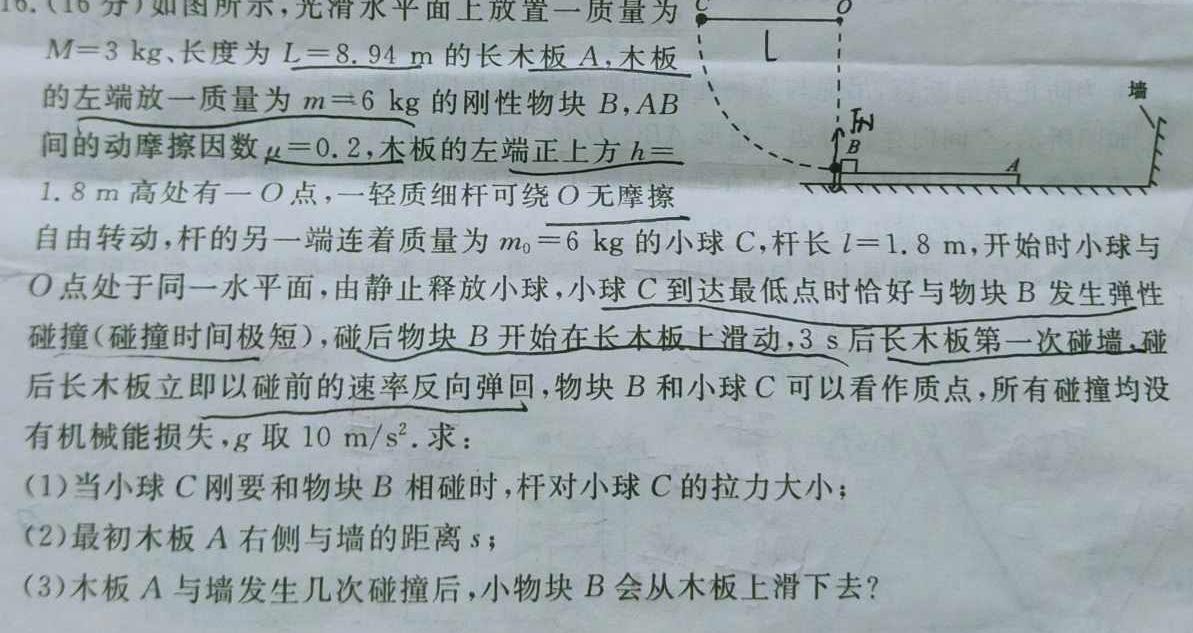 16.(16分)如图所示,光滑水平面上放置一质量为
M=3 kg、长度为L=8.94 m的长木板A,木板
的左端放一质量为m=6 kg的刚性物块B,AB
间的动摩擦因数μ=0.2,木板的左端正上方h=
1.8 m高处有一O点,一轻质细杆可绕O无摩擦
自由转动,杆的另一端连着质量为m₀=6 kg的小球C,杆长l=1.8 m,开始时小球与
O点处于同一水平面,由静止释放小球,小球C到达最低点时恰好与物块B发生弹性
碰撞(碰撞时间极短),碰后物块B开始在长木板上滑动,3 s后长木板第一次碰墙,碰
后长木板立即以碰前的速率反向弹回,物块B和小球C可以看作质点,所有碰撞均没
有机械能损失,g取10 m/s².求:
(1)当小球C刚要和物块B相碰时,杆对小球C的拉力大小;
(2)最初木板A右侧与墙的距离s;
(3)木板A与墙发生几次碰撞后,小物块B会从木板上滑下去?
C
O
L
墙
FN
B
A